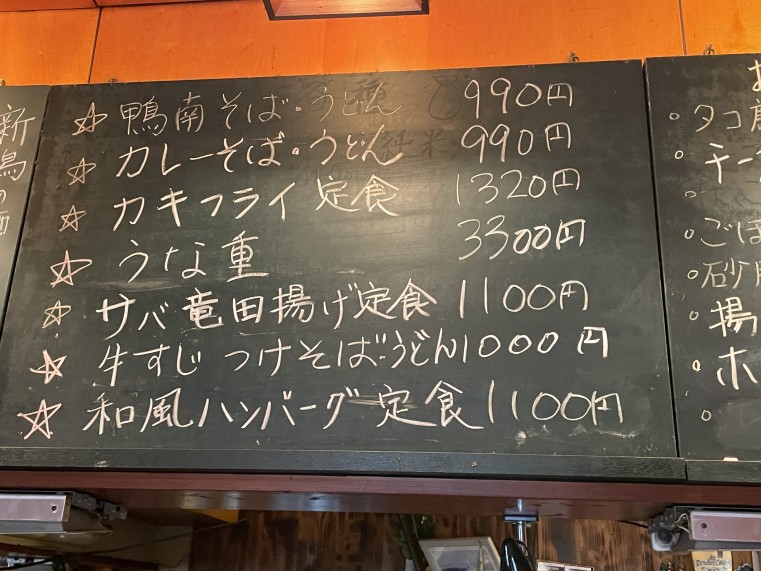 新潟の酒
☆ 鴨南そば・うどん 990円
☆ カレーそば・うどん 990円
☆ カキフライ定食 1320円
☆ うな重 3300円
☆ サバ竜田揚げ定食 1100円
☆ 牛すじつけそば・うどん 1000円
☆ 和風ハンバーグ定食 1100円
お
○タコ
○チー
○ごぼ
○砂
○揚
○ホ
○